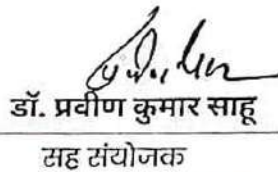 डॉ. प्रवीण कुमार साहू
सह संयोजक